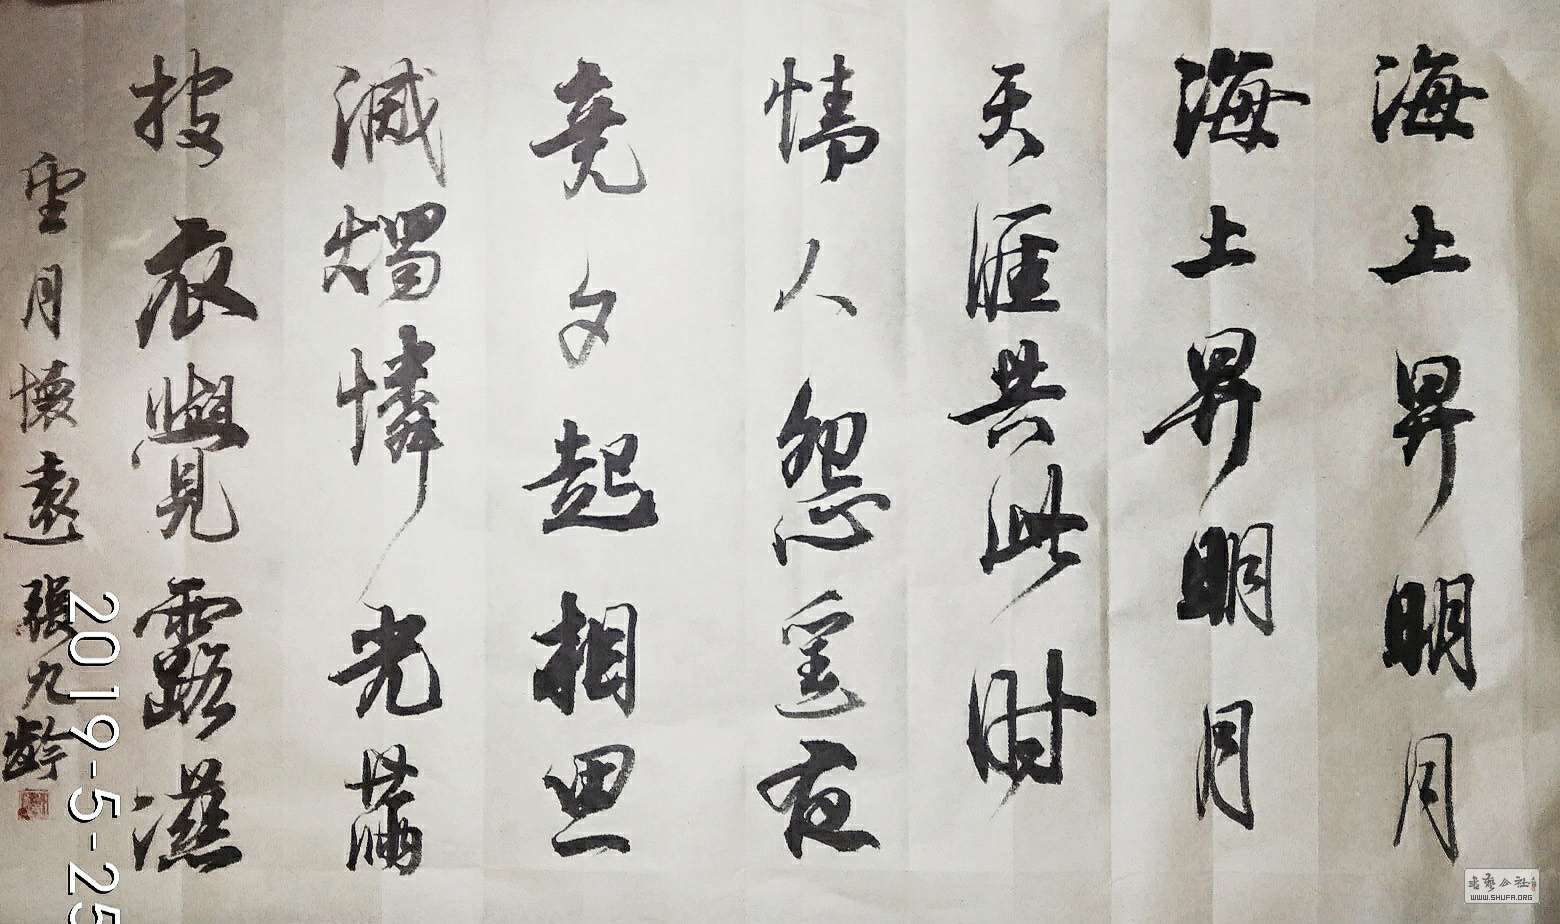 海上昇明月
海上昇明月
天涯共此时
情人怨遥夜
竟夕起相思
滅燭憐光满
披衣覺露濕
望月懷遠 張九齡
2019-5-25
书艺公社
WWW.SHUFA.ORG